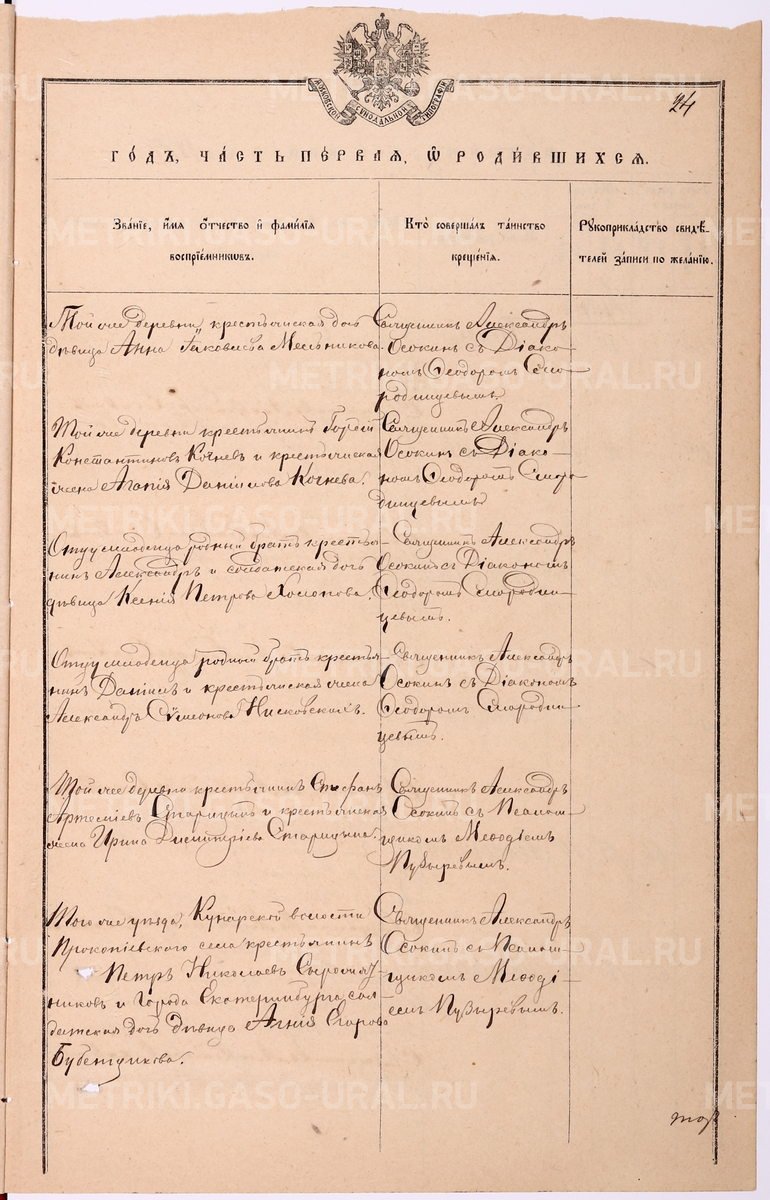 МОСКОВСКОЙ СѴНОДАЛЬНОЙ ТИПОГРАФІИ
24
ГОДЪ, ЧАСТЬ ПЕРВАЯ, Ѿ РОДИВШИХСЯ.
Званіе, имя отчество и фамилія
воспріемниковъ.
Кто совершалъ таинство
крещенія.
Рукоприкладство свидѣ-
телей записи по желанію.
Той же деревни, крестьянская дочь
дѣвица Анна Іаковлева Мельникова
Священникъ Александръ
Осокинъ съ Діако-
номъ Ѳеодоромъ Смо-
родинцевымъ.
Той же деревни крестьянинъ Гордій
Константиновъ Кочневъ и крестьянская
жена Агапія Даніилова Кочнева.
Священникъ Александръ
Осокинъ съ Діако-
номъ Ѳеодоромъ Сморо-
динцевымъ
Отцу младенца родный братъ крестья-
нинъ Александръ и солдатская дочь
дѣвица Ксенія Петрова Холопова.
Священникъ Александръ
Осокинъ съ Діакономъ
Ѳеодоромъ Смородин-
цевымъ.
Отцу младенца родный братъ крестья-
нинъ Даніилъ и крестьянская жена
Александръ Сѷмеонова Нисковскихъ.
Священникъ Александръ
Осокинъ съ Діакономъ
Ѳеодоромъ Смородин-
цевымъ.
Той же деревни крестьянинъ Стефанъ
Артеміевъ Старицынъ и крестьянская
жена Ирина Димитріева Старицына.
Священникъ Александръ
Осокинъ съ Псалом-
щикомъ Меѳодіемъ
Пузыревымъ.
Того же уѣзда, Кунарской волости
Прокопіевского села крестьянинъ
Петръ Николаевъ Сыромят-
никовъ и Города Екатеринбурга сол-
датская дочь дѣвица Агнія Егорова
Бубенщикова.
Священникъ Александръ
Осокинъ съ Псалом-
щикомъ Меѳоді-
емъ Пузыревымъ.
METRIKI.GASO-URAL.RU